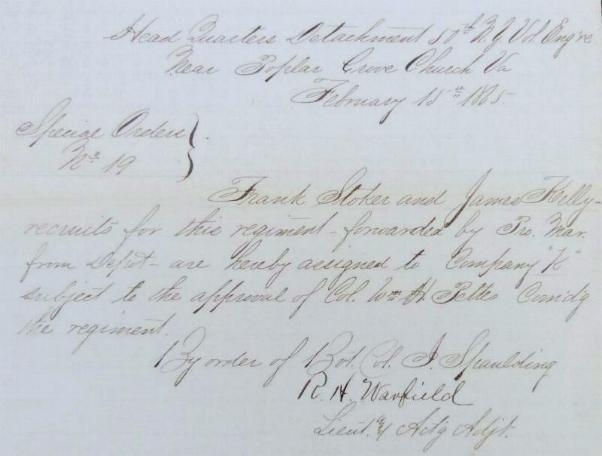 Head Quarters Detachment 50th N.Y. Vol Engrs
Near Poplar Grove Church Va
February 15th 1865
Special Orders
No 19
Frank Stoker and James Kelly-
recruits for this regiment - forwarded by Pro. Mar.
from Depot - are hereby assigned to Company "K"
subject to the approval of Col. Wm H. Pettes Comdg
the regiment.
By order of Bvt. Col. I. Spaulding
R. H. Warfield
Lieut. & Actg Adjt.